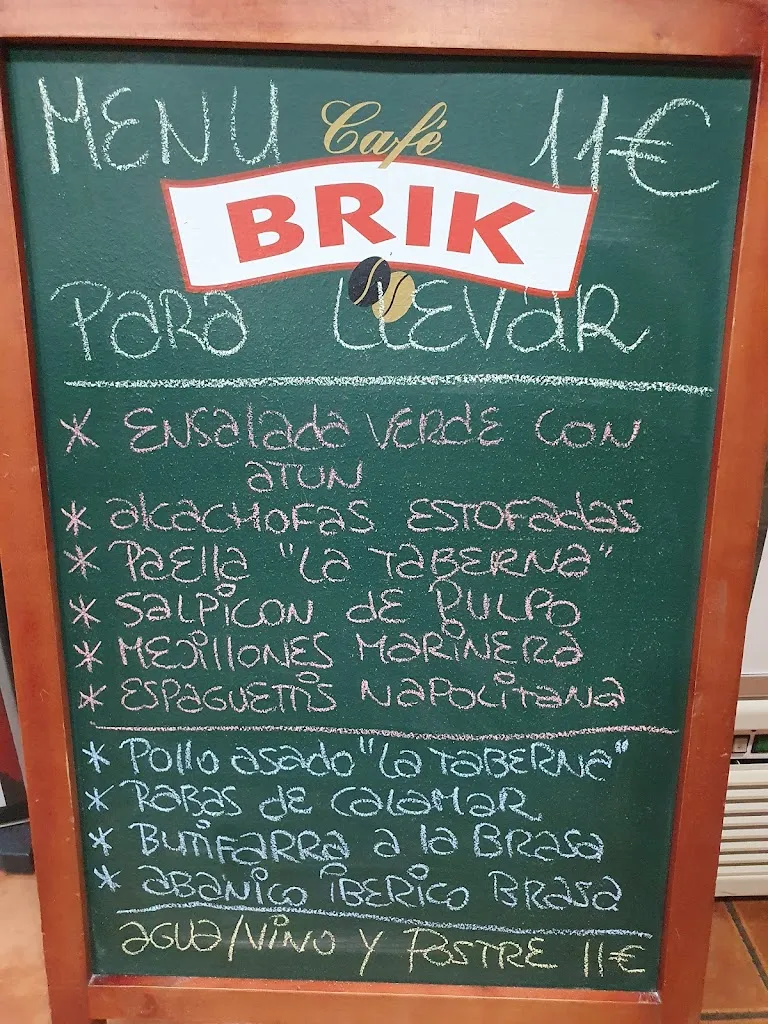 MENU Café 11€
BRIK
PARA LLEVAR
* ENSALADA VERDE CON
ATUN
* ALCACHOFAS ESTOFADAS
* PAELLA "LA TABERNA"
* SALPICON DE PULPO
* MEJILLONES MARINERA
* ESPAGUETTIS NAPOLITANA
* POLLO ASADO "LA TABERNA"
* RABAS DE CALAMAR
* BUTIFARRA A LA BRASA
* ABANICO IBERICO BRASA
AGUA/VINO Y POSTRE 11€